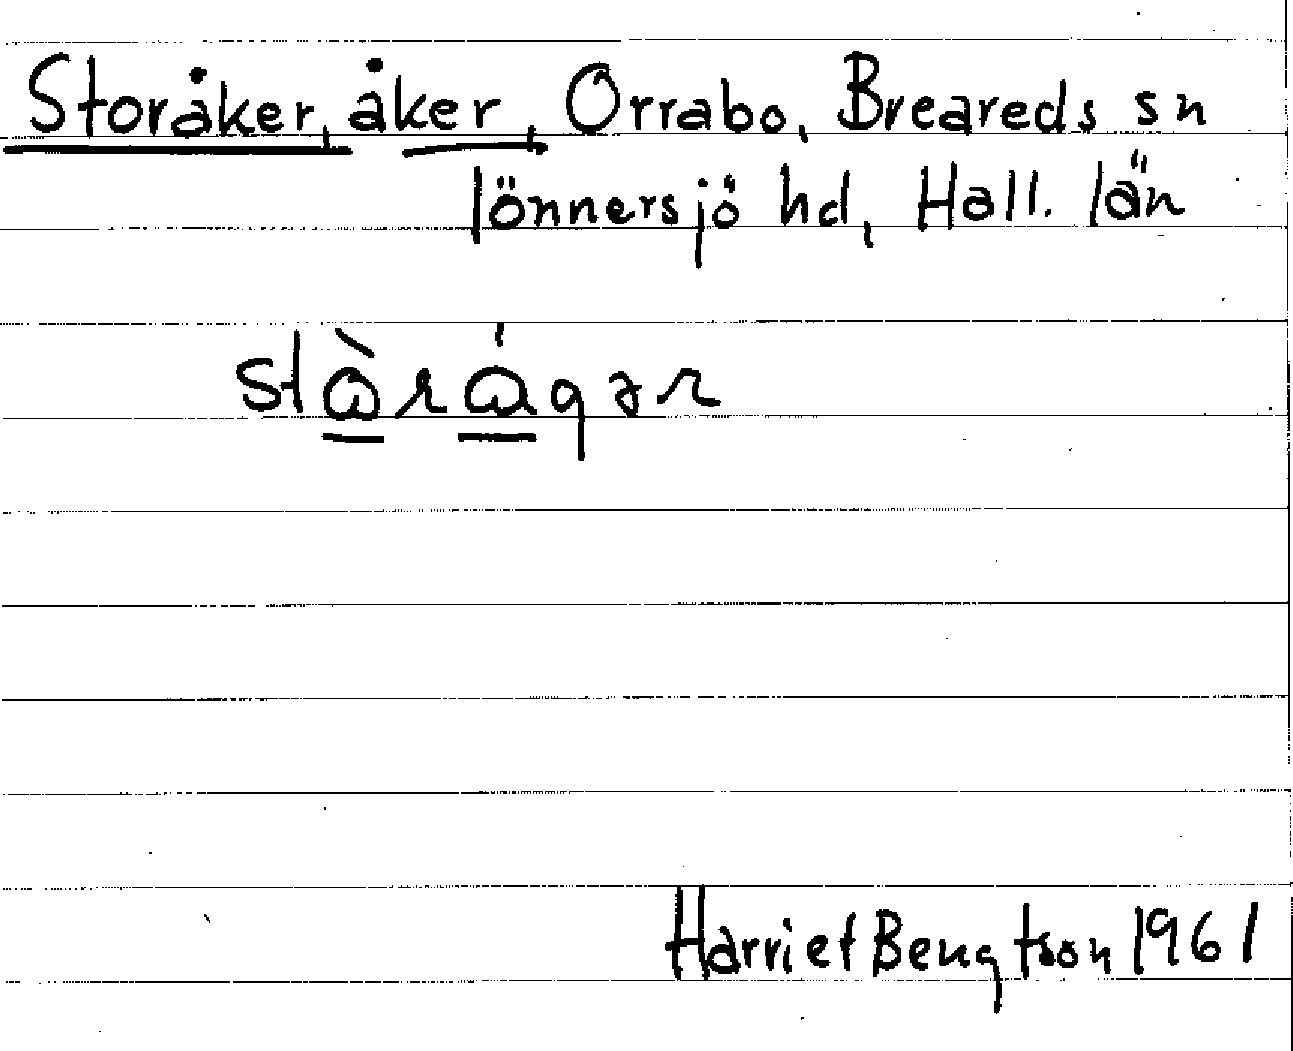 Storåker, åker, Orrabo, Breareds sn
lönnersjö hd, Hall. län
Harriet Bengtson 1961